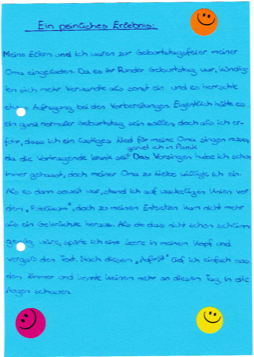 Ein peinliches Erlebnis:
Meine Eltern und ich waren zur Geburtstagsfeier meiner
Oma eingeladen. Da es ihr Runder Geburtstag war, kündig-
ten sich mehr Verwandte als sonst an und es herrschte
Aufregung bei den Vorbereitungen. Eigentlich hätte es
ein ganz normaler Geburtstag sein sollen, doch als ich er-
fuhr, dass ich ein lustiges Lied für meine Oma singen musste,
geriet ich in Panik
da die Vortragende krank war. Das Vorsingen habe ich schon
immer gehasst, doch meiner Oma zu Liebe willigte ich ein.
Als es dann soweit war, stand ich auf wackeligen Knien vor
dem „Publikum“, doch zu meinem Entsetzen kam nicht mehr
als ein Gekrächze heraus. Als ob dies nicht schon schlimm
genug wäre, spürte ich eine Leere in meinem Kopf und
vergaß den Text. Nach diesem „Auftritt“ lief ich einfach aus
dem Zimmer und konnte keinem mehr an diesem Tag in die
Augen schauen.